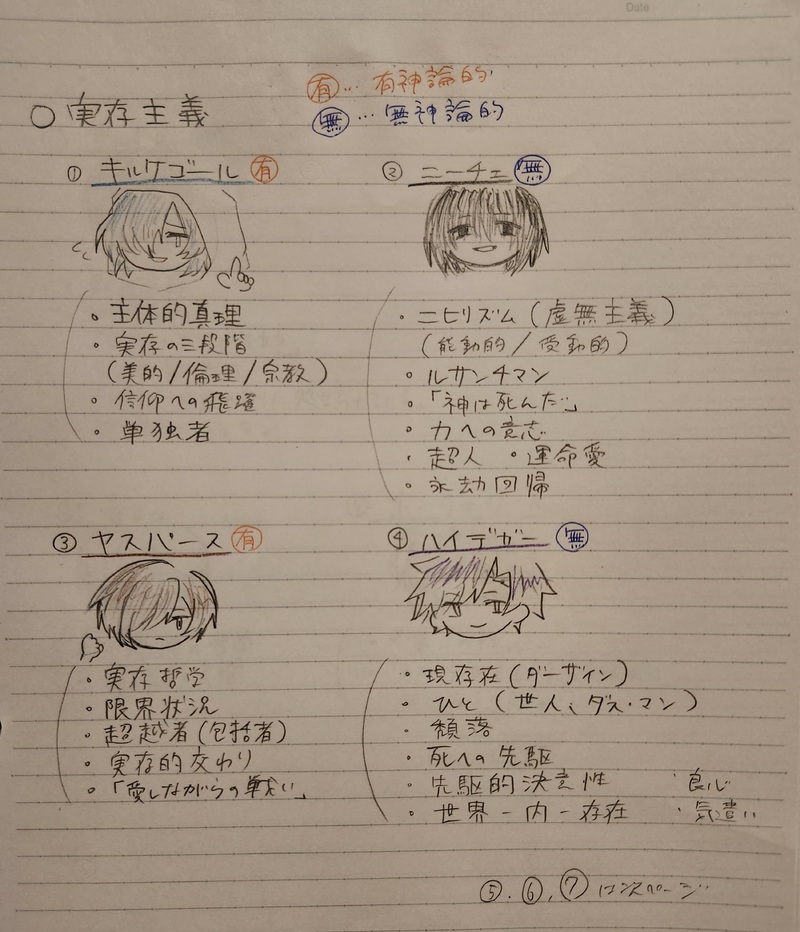 Date
有… 有神論的
無… 無神論的
○ 実存主義
① キルケゴール 有
・主体的真理
・実存の三段階
(美的/倫理/宗教)
・信仰への飛躍
・単独者
② ニーチェ 無
・ニヒリズム(虚無主義)
(能動的/受動的)
・ルサンチマン
・「神は死んだ」
・力への意志
・超人 ・運命愛
・永劫回帰
③ ヤスパース 有
・実存哲学
・限界状況
・超越者(包括者)
・実存的交わり
・「愛しながらの戦い」
④ ハイデガー 無
・現存在(ダーザイン)
・ひと(世人、ダス・マン)
・頽落
・死への先駆
・先駆的決意性 ・良心
・世界-内-存在 ・気遣い
⑤.⑥,⑦は次ページ…